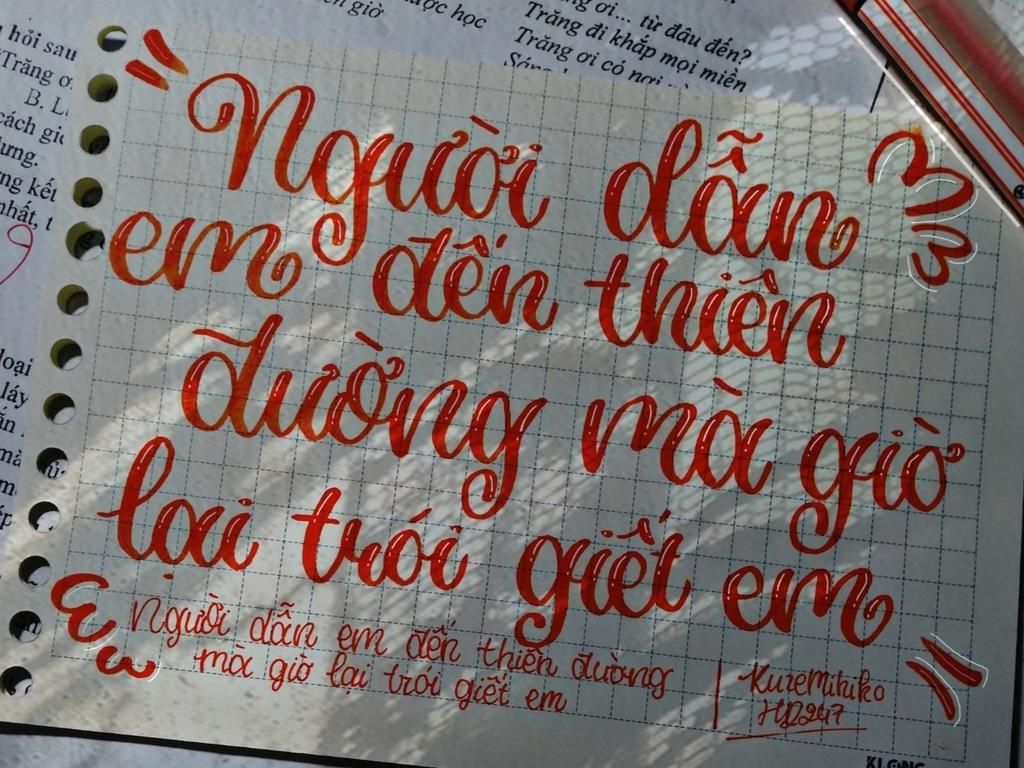 hỏi sau
"Trăng ơ
B. L
cách gi
ung.
ng kết
nhất, t
ược học
ên giờ
ơi... từ đâu đến?
Trăng đi khắp mọi miền
Trăng ơi có nơi
Người dẫn
em đến thiên
đường mà giờ
lại trói giết em
Người dẫn em đến thiên đường
mà giờ lại trói giết em
KureMituko
HD247
loại
láy
KLONG